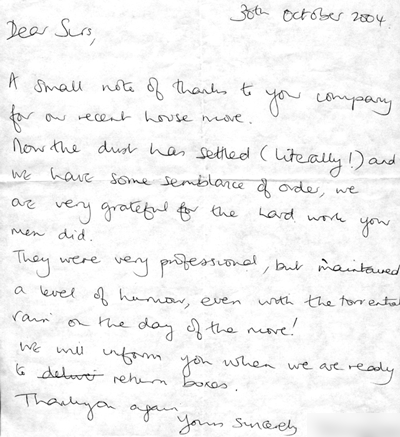 30th October 2004.
Dear Sirs,
A small note of thanks to your company
for our recent house move.
Now the dust has settled (literally!) and
we have some semblance of order, we
are very grateful for the hard work your
men did.
They were very professional, but maintained
a level of humour, even with the torrential
rain on the day of the move!
We will inform you when we are ready
to deliver return boxes.
Thankyou again
Yours Sincerely